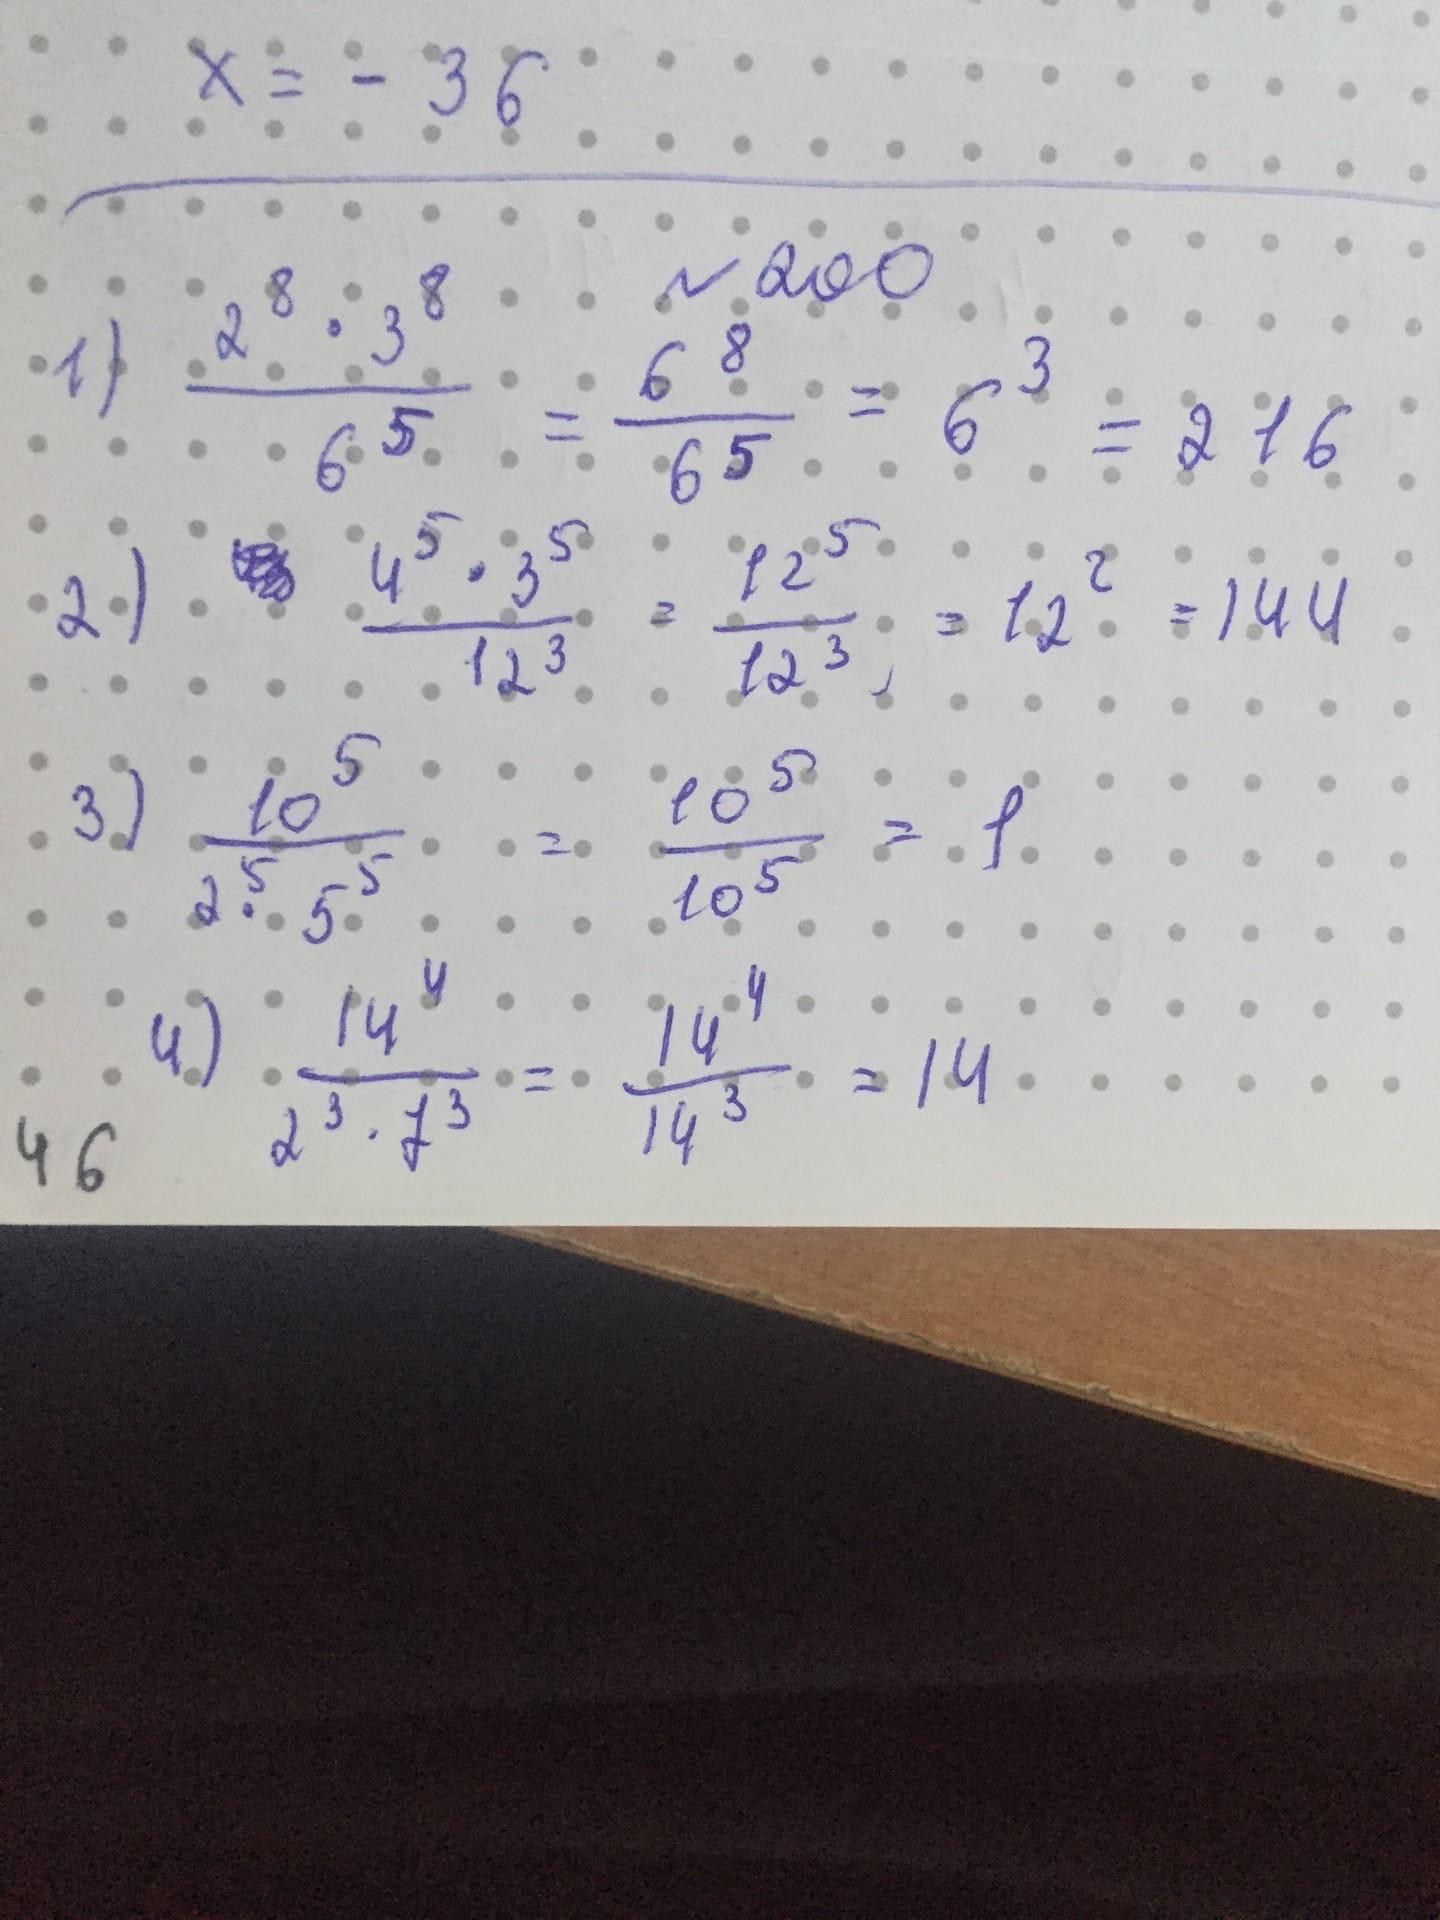 x = - 36
~ 200
1) 2^8 · 3^8 / 6^5 = 6^8 / 6^5 = 6^3 = 216
2) 4^5 · 3^5 / 12^3 = 12^5 / 12^3 = 12^2 = 144
3) 10^5 / 2^5 · 5^5 = 10^5 / 10^5 = 1
4) 14^4 / 2^3 · 7^3 = 14^4 / 14^3 = 14
46